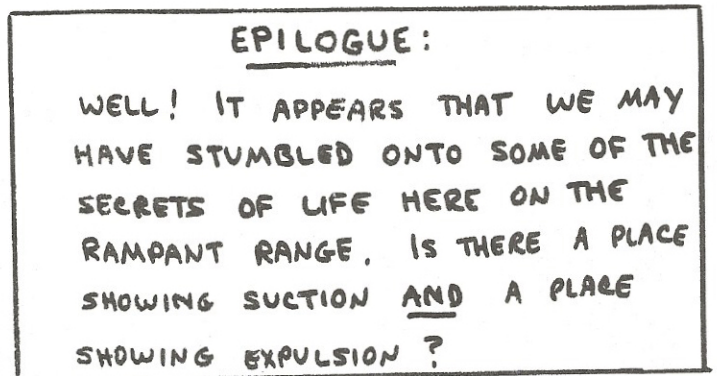 EPILOGUE:
WELL! IT APPEARS THAT WE MAY
HAVE STUMBLED ONTO SOME OF THE
SECRETS OF LIFE HERE ON THE
RAMPANT RANGE. IS THERE A PLACE
SHOWING SUCTION AND A PLACE
SHOWING EXPULSION?